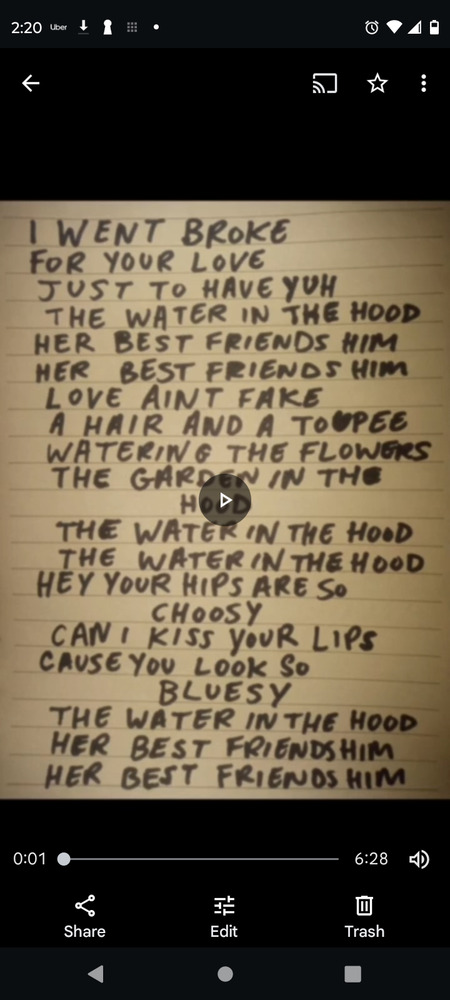 2:20 Uber
I WENT BROKE
FOR YOUR LOVE
JUST TO HAVE YUH
THE WATER IN THE HOOD
HER BEST FRIENDS HIM
HER BEST FRIENDS HIM
LOVE AINT FAKE
A HAIR AND A TOUPEE
WATERING THE FLOWERS
THE GARDEN IN THE
HOOD
THE WATER IN THE HOOD
THE WATER IN THE HOOD
HEY YOUR HIPS ARE SO
CHOOSY
CAN I KISS YOUR LIPS
CAUSE YOU LOOK SO
BLUESY
THE WATER IN THE HOOD
HER BEST FRIENDS HIM
HER BEST FRIENDS HIM
0:01 6:28
Share Edit Trash